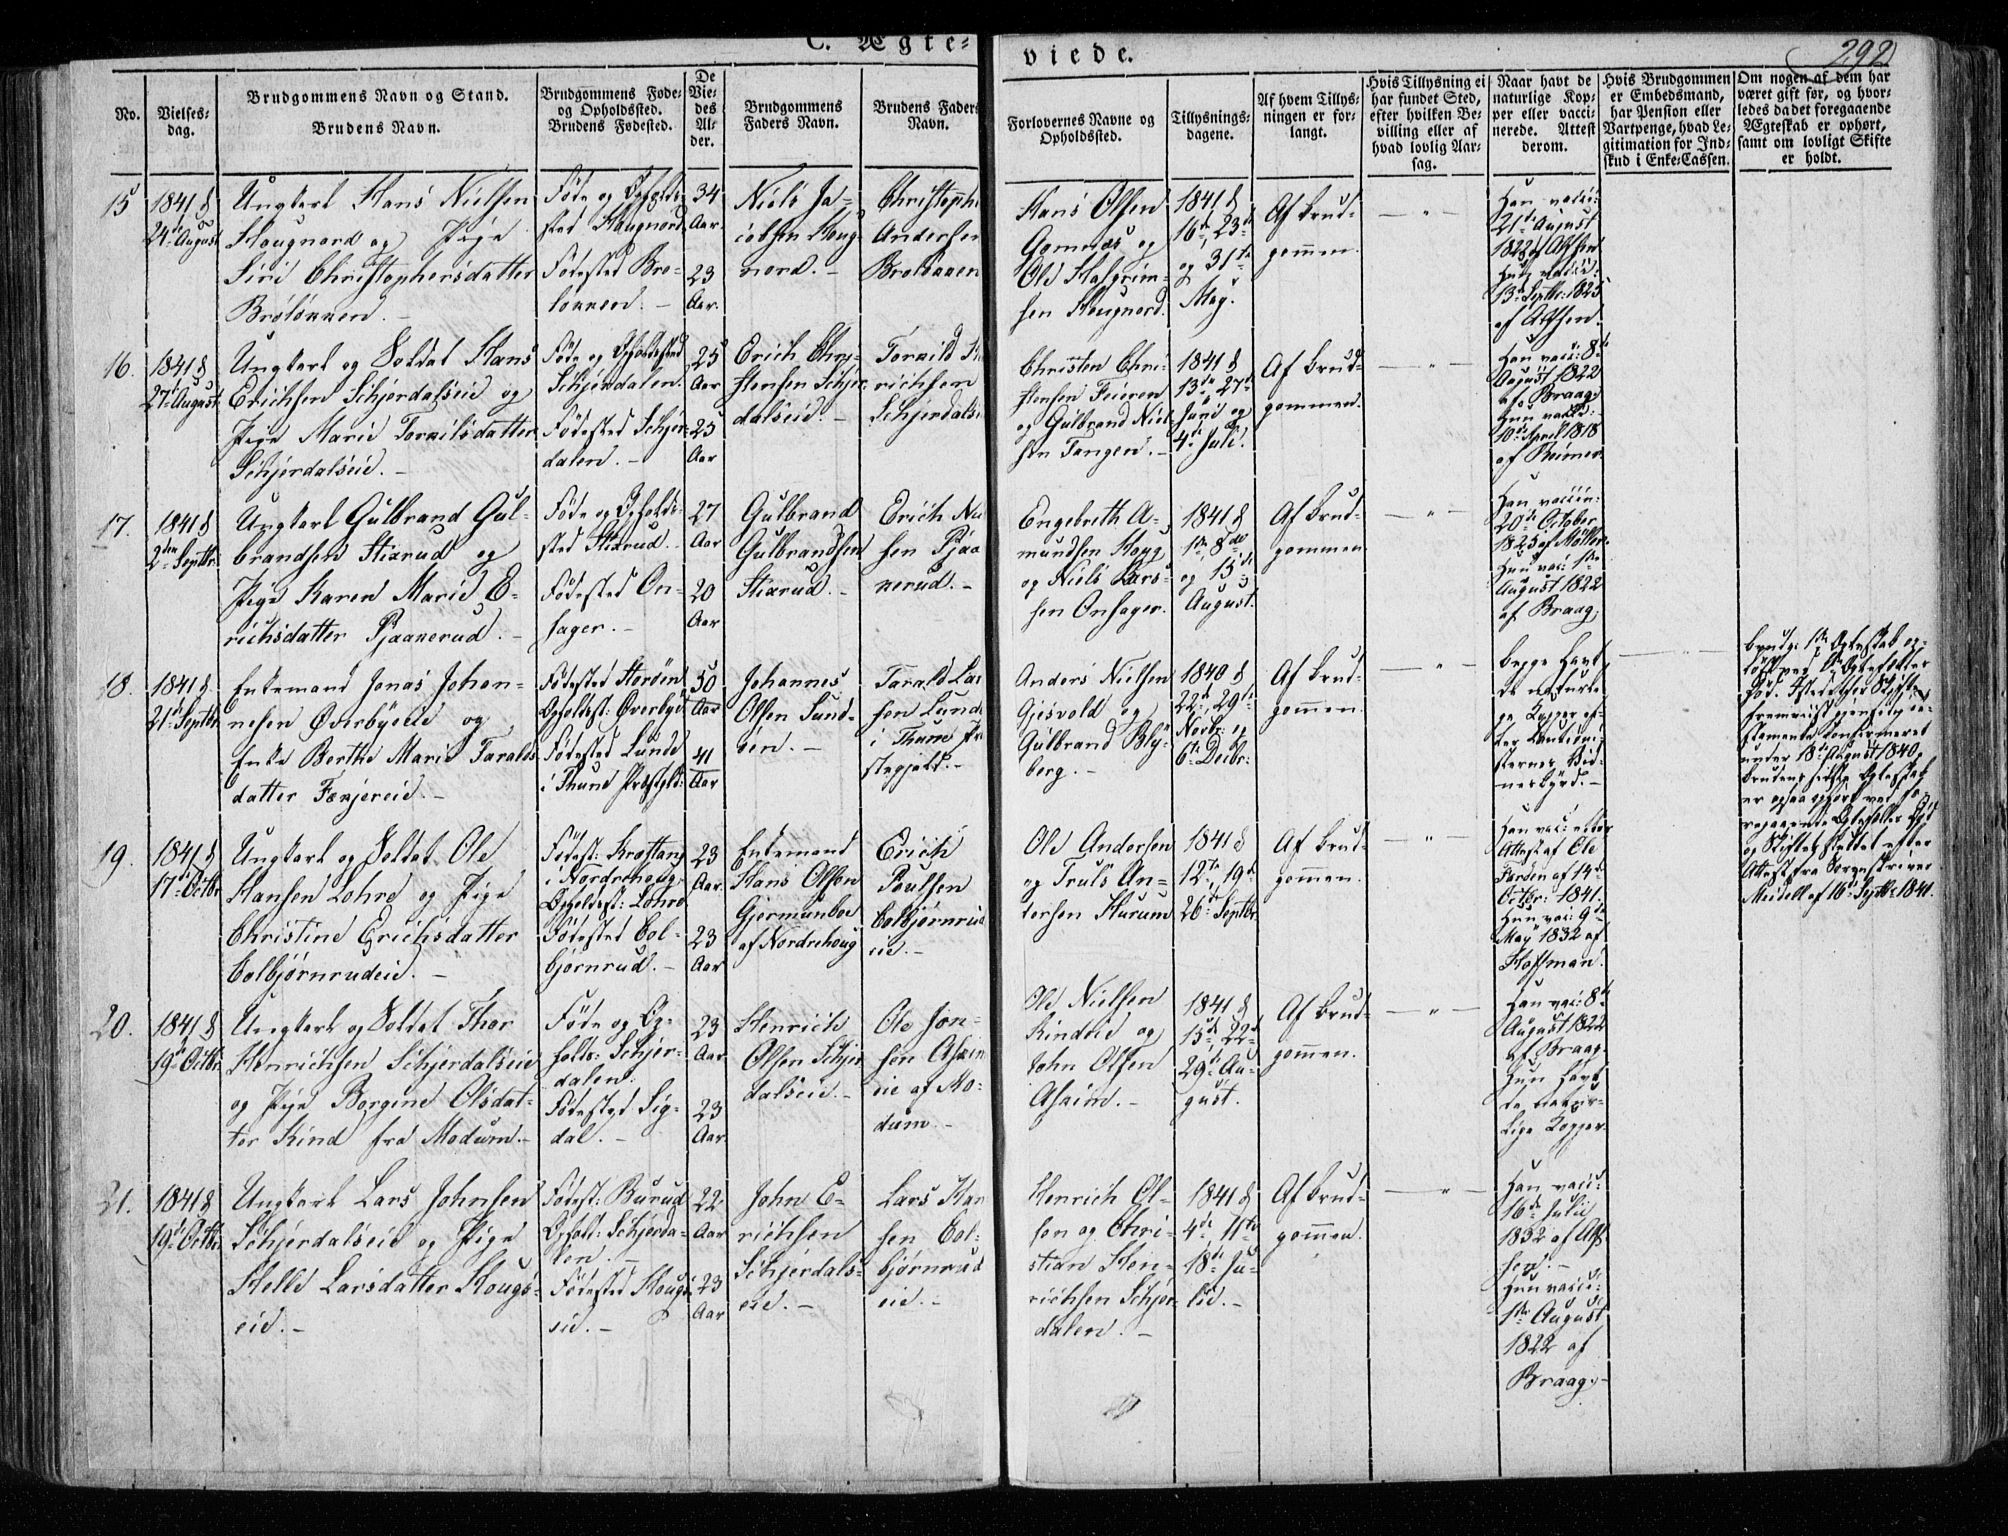 C. Ægte-
viede.
292
No.
Vielses-
dag.
Brudgommens Navn og Stand.
Brudens Navn.
Brudgommens Føde-
og Opholdssted.
Brudens Fødested.
De
Vie-
des
Al-
der.
Brudgommens
Faders Navn.
Brudens Faders
Navn.
Forlovernes Navne og
Opholdssted.
Tillysnings-
dagene.
Af hvem Tillys-
ningen er for-
langt.
Hvis Tillysning ei
har fundet Sted,
efter hvilken Be-
villing eller af
hvad lovlig Aar-
sag.
Naar havt de
naturlige Kop-
per eller vacci-
nerede. Attest
derom.
Hvis Brudgommen
er Embedsmand,
har Pension eller
Vartpenge, hvad Le-
gitimation for Ind-
skud i Enke-Cassen.
Om nogen af dem har
været gift før, og hvor-
ledes da det foregaaende
Ægteskab er ophørt,
samt om lovligt Skifte
er holdt.
15
1841 d
24de August
Ungkarl Hans Nielsen
Hougnord og Pige
Siri Christophersdatter
Føde og Opholds-
sted Hougnord
Fødested Bro-
34
Aar
23
Aar.
Niels Ja-
cobsen Houg-
nord. -
Christoph
Andersen
Hans Olsen
og
Ole Halgrim-
sen Hougnord.
1841 d
16de, 23de
og 31te
May.
Af Brud-
gommen.
- " -
Han vacci:
21de August
1822 af Alfsen
Hun vacci:
13de Septbr: 1825
af Alfsen.
16.
1841 d
27de August
Ungkarl og Soldat Hans
Erichsen Schjerdalseie og
Pige Marie Toraildsdatter
Schjerdalseie. -
Føde og Opholdssted
Schjerdalen.
Fødested Schjer-
dalen. -
25
Aar
25
Aar
Erich Chri-
stensen Schjer-
dalseie. -
Torild
richsen
Schjerdalsei
Christen Chri-
stensen Feieren
og Gulbrand Niel-
sen Tangen. -
1841 d
13de, 27de
Juni og
4de Juli.
Af Brud-
gommen.
- " -
Han vacc: 8de
August 1822
af Braag.
Hun vacci:
10de April 1818
af Reimers.
17.
1841 d
2den Septbr.
Ungkarl Gulbrand Gul-
brandsen Stixrud og
Pige Karen Marie E-
richsdatter Pjaanerud. -
Føde og Opholds-
sted Stixrud. -
Fødested On-
sager. -
27
Aar
20
Aar
Gulbrand
Gulbrandsen
Stixrud. -
Erich Niel
sen Pjaa
nerud. -
Engebreth A-
mundsen Houg
og Niels Lars-
sen Onsager.
1841 d
1ste, 8de
og 15de
August.
Af Brud-
gommen
- " -
Han vaccin:
20de October
1825 af Møller.
Hun vacc: 1ste
August 1822
af Braag.
18.
1841 d.
21de Septbr.
Enkemand Jonas Johan-
nesen Øverbyeie og
Enke Berthe Marie Taralds
datter Fænjereie. -
Fødested Storøen
Opholdsst: Øverbye
Fødested Lunde
i Thune Præstgld:
50
Aar
41
Aar
Johannes
Olsen Sund-
øen. -
Tarald Lar
sen Lund
i Thune Præ
stegjeld. -
Anders Nielsen
Gjesvold og
Gulbrand Bly-
berg. -
1840 d
22de, 29de
Novbr. og
6te Decbr:
Af Brud-
gommen.
- " -
Begge havt
de naturli-
ge Kopper ef-
ter Cautioni-
sternes Vid-
nesbyrd. -
Brudg: 1ste Ægteskab op-
løst ved
fremviist
Confirmeret
under 18de August 1840.
Brudens sidste Ægteskab
er ogsaa ophørt ved fo-
regaaende Ægtefælles Død
og Skiftet sluttet efter
Attest fra Sorenskriver
Meidell af 16de Septbr 1841.
19.
1841 d
17de Octbr.
Ungkarl og Soldat Ole
Hansen Lohre og Pige
Christine Erichsdatter
Colbjørnrudeie. -
Fødest:
i Norderhoug
Opholdsst: Lohre
Fødested Col-
bjørnrud. -
23
Aar.
23
Aar
Enkemand
Hans Olsen
Gjermundboe
af Norderhoug
Erich
Poulsen
Colbjørnrud
eie. -
Ole Andersen
og Truls An-
dersen Hurum
1841 d
12te, 19de
26de Septbr.
Af Brud-
gommen.
- " -
Han vac: efter
Attest af Ole
Sørøen af 14de
Octbr: 1841.
Hun vac: 9de
May 1832 af
Hoffman.
20.
1841 d
19de Octbr.
Ungkarl og Soldat Thor
Henrichsen Schjerdalseie
og Pige Borgine Olsdat-
ter Kind fra Modum. -
Føde og Op-
holds: Schjer-
dalen.
Fødested Sig-
dal. -
23
Aar
23
Aar.
Henrich
Olsen Schjer-
dalseie. -
Ole Jon-
sen
eie af Mo-
dum. -
Ole Nielsen
Kindeie og
John Olsen
1841 d
15de, 22de
29de Au-
gust.
Af Brud-
gommen.
- " -
Han vac: 8de
August 1822
af Braag.
Hun havt
de natur-
lige Kopper.
21.
1841 d
19de Octbr.
Ungkarl Lars Johnsen
Schjerdalseie og Pige
Helle Larsdatter Hougs-
eie. -
Fødest: Burud
Ophold: Schjerda-
len. -
Fødested Hougs-
eie. -
22
Aar
23
Aar
John E-
richsen
Schjerdals-
eie. -
Lars Han
sen Col-
bjørnrud
eie. -
Henrich Ol-
sen og Chri-
stian Hen-
richsen Schjer-
dalen. -
1841 d
4de, 11te
18de Ju-
lie. -
Af Brud-
gommen.
- " -
Han vacci:
16de Julie
1832 af Alf-
sen. -
Hun vacci:
1ste August
1822 af
Braag. -